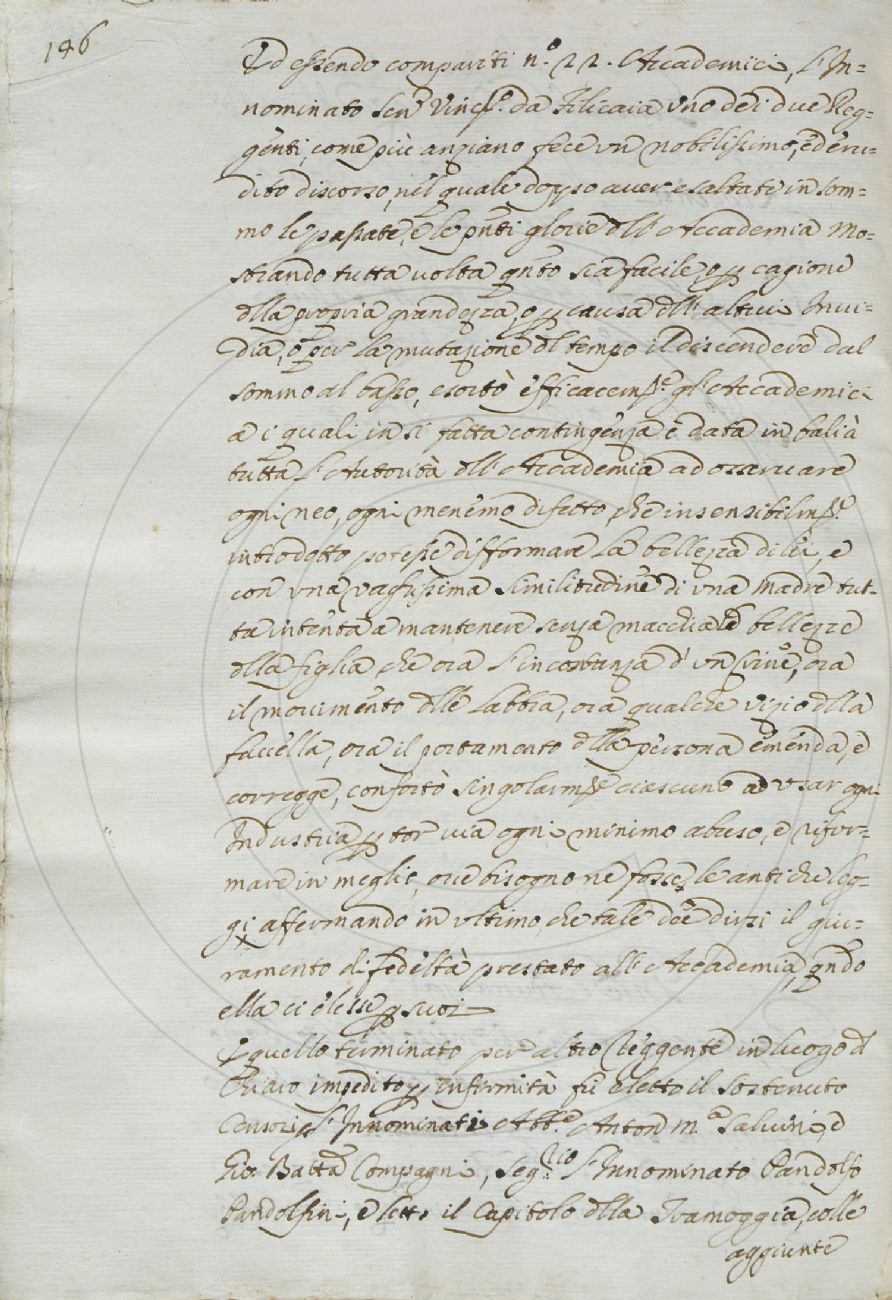 196
Ed essendo compariti n.° 22. Accademici, l'In-
nominato Sen.r Vinc.° da Filicaia uno dei due Reg-
genti, come più anziano fece un nobilissimo, ed eru-
dito discorso, nel quale doppo aver esaltate in som-
mo le passate, e le pnti glorie dll'Accademia Mo-
strando tutta volta qnto sia facile o p cagione
dlla propria grandezza, o p causa dll'altrui Invi-
dia, o per la mutazione dl tempo il discendere dal
sommo al basso, esortò efficacem.te gl'Accademici
a i quali in si fatta contingenza è data in balià
tutta l'Autorità dll'Accademia ad osservare
ogni neo, ogni menomo difetto, che insensibilm.te
introdotto potesse difformare la bellezza di lei, e
con una vaghissima similitudine di una Madre tut-
ta intenta a mantenere senza macchia le bellezze
dlla figlia che ora l'incostanza d'un Crine, ora
il movimento dlle Labbra, ora qualche vizio dlla
favella, ora il portamento dlla persona emenda, e
corregge, confortò singolarm.te ciascuno ad usar ogni
Industria p tor via ogni minimo abuso, e rifor-
mare in meglio, ove bisogno ne fosse, le antiche leg-
gi, affermando in ultimo, che tale dee dirsi il giu-
ramento di fedeltà prestato all'Accademia, qndo
ella ci elesse p suoi
E quello terminato per altro Reggente in luogo dl
Chiaro impedito p infermità fu eletto il Sostenuto
Censori gl'Innominati Abb.e Anton M.a Salvini, e
Gio: Batta Compagni, Seg.rio l'Innominato Pandolfo
Pandolfini, e letto il Capitolo dlla Tramoggia, colle
aggiunte